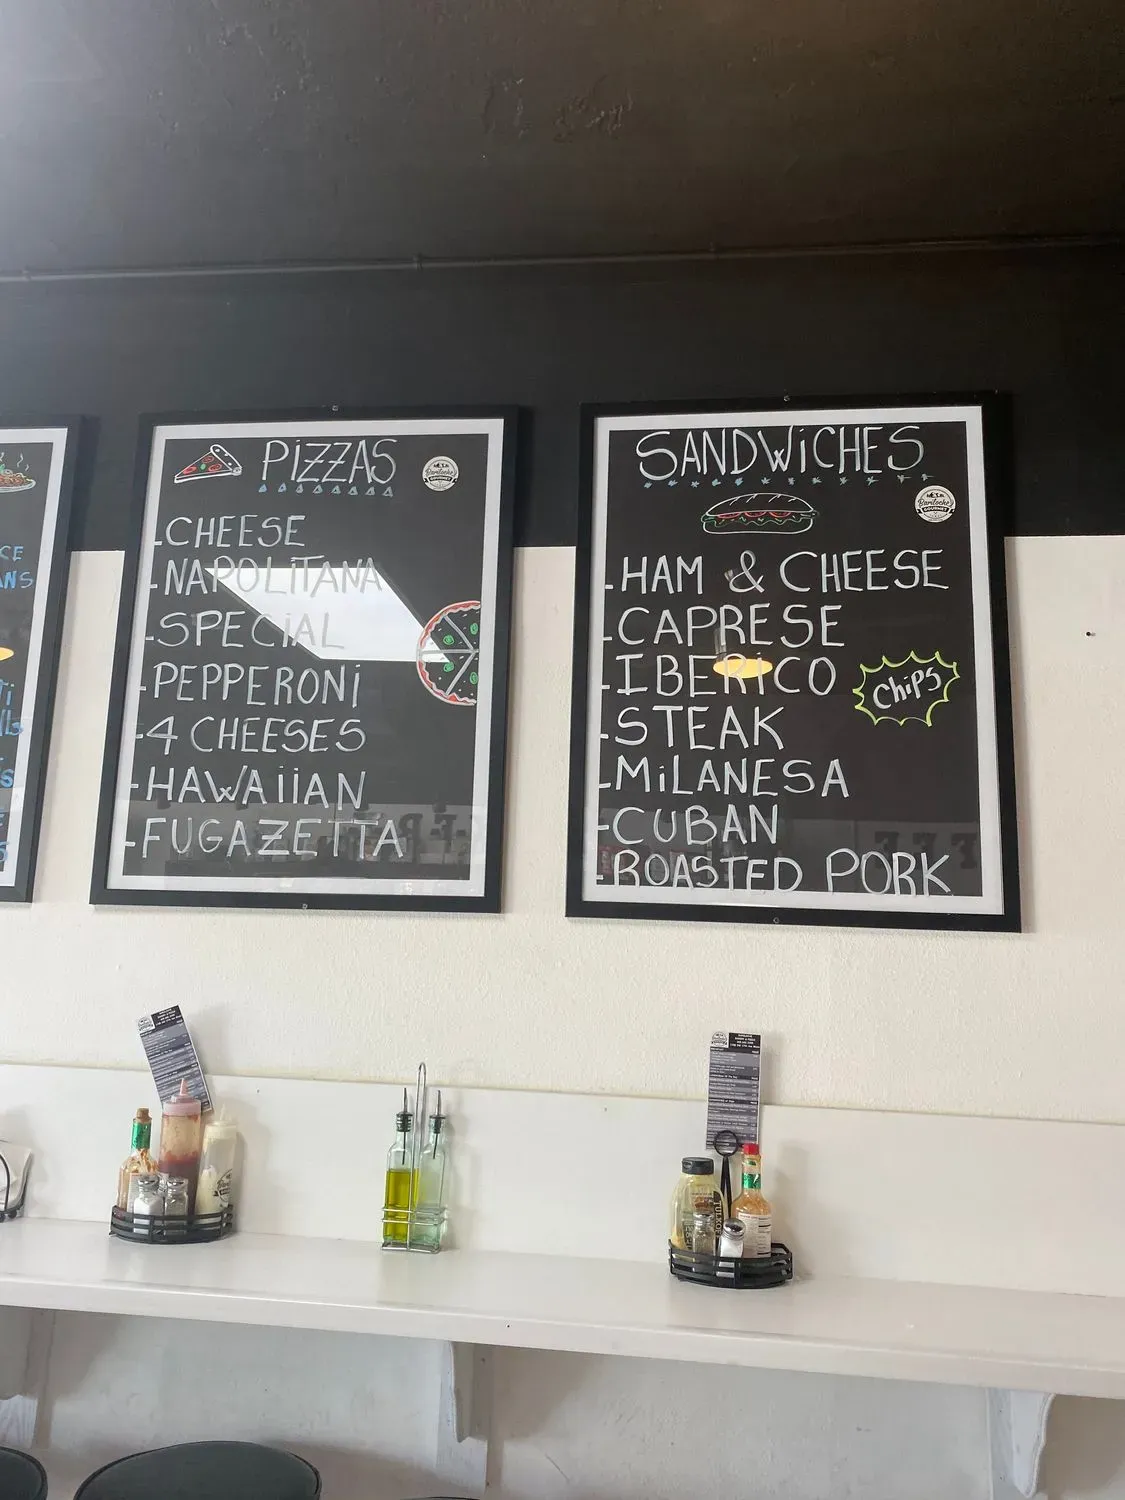 CE
ANS
Ti
PiZZAS
Bariloche
GOURMET
-CHEESE
-NAPOLiTANA
-SPECiAL
-PEPPERONi
-4 CHEESES
-HAWAiiAN
-FUGAZETTA
SANDWiCHES
Bariloche
GOURMET
-HAM & CHEESE
-CAPRESE
-IBERICO
-STEAK
-MiLANESA
-CUBAN
-ROASTED PORK
ChiPS